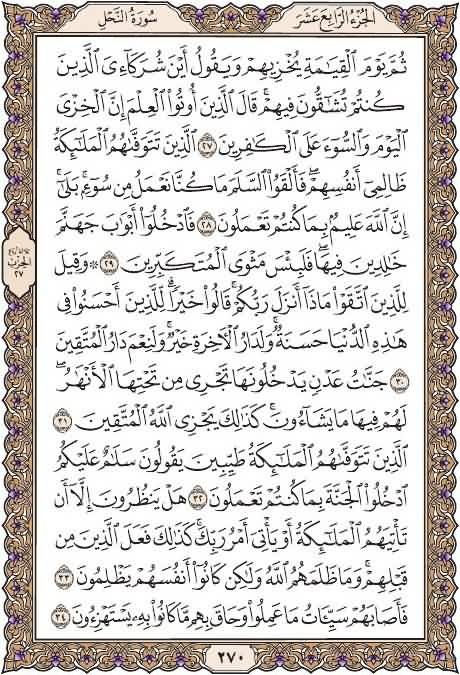 الجزء الرابع عشر
سورة النحل
ثُمَّ يَوْمَ ٱلْقِيَٰمَةِ يُخْزِيهِمْ وَيَقُولُ أَيْنَ شُرَكَآءِيَ ٱلَّذِينَ
كُنتُمْ تُشَٰٓقُّونَ فِيهِمْ ۚ قَالَ ٱلَّذِينَ أُوتُوا۟ ٱلْعِلْمَ إِنَّ ٱلْخِزْىَ
ٱلْيَوْمَ وَٱلسُّوٓءَ عَلَى ٱلْكَٰفِرِينَ ٢٧ ٱلَّذِينَ تَتَوَفَّىٰهُمُ ٱلْمَلَٰٓئِكَةُ
ظَالِمِىٓ أَنفُسِهِمْ ۖ فَأَلْقَوُا۟ ٱلسَّلَمَ مَا كُنَّا نَعْمَلُ مِن سُوٓءٍۭ ۚ بَلَىٰٓ
إِنَّ ٱللَّهَ عَلِيمٌۢ بِمَا كُنتُمْ تَعْمَلُونَ ٢٨ فَٱدْخُلُوٓا۟ أَبْوَٰبَ جَهَنَّمَ
خَٰلِدِينَ فِيهَا ۖ فَلَبِئْسَ مَثْوَى ٱلْمُتَكَبِّرِينَ ٢٩ ۞ وَقِيلَ
لِلَّذِينَ ٱتَّقَوْا۟ مَاذَآ أَنزَلَ رَبُّكُمْ ۚ قَالُوا۟ خَيْرًا ۗ لِّلَّذِينَ أَحْسَنُوا۟ فِى
هَٰذِهِ ٱلدُّنْيَا حَسَنَةٌ ۚ وَلَدَارُ ٱلْءَاخِرَةِ خَيْرٌ ۚ وَلَنِعْمَ دَارُ ٱلْمُتَّقِينَ
٣٠ جَنَّٰتُ عَدْنٍ يَدْخُلُونَهَا تَجْرِى مِن تَحْتِهَا ٱلْأَنْهَٰرُ ۖ
لَهُمْ فِيهَا مَا يَشَآءُونَ ۚ كَذَٰلِكَ يَجْزِى ٱللَّهُ ٱلْمُتَّقِينَ ٣١
ٱلَّذِينَ تَتَوَفَّىٰهُمُ ٱلْمَلَٰٓئِكَةُ طَيِّبِينَ ۙ يَقُولُونَ سَلَٰمٌ عَلَيْكُمُ
ٱدْخُلُوا۟ ٱلْجَنَّةَ بِمَا كُنتُمْ تَعْمَلُونَ ٣٢ هَلْ يَنظُرُونَ إِلَّآ أَن
تَأْتِيَهُمُ ٱلْمَلَٰٓئِكَةُ أَوْ يَأْتِىَ أَمْرُ رَبِّكَ ۚ كَذَٰلِكَ فَعَلَ ٱلَّذِينَ مِن
قَبْلِهِمْ ۚ وَمَا ظَلَمَهُمُ ٱللَّهُ وَلَٰكِن كَانُوٓا۟ أَنفُسَهُمْ يَظْلِمُونَ ٣٣
فَأَصَابَهُمْ سَيِّـَٔاتُ مَا عَمِلُوا۟ وَحَاقَ بِهِم مَّا كَانُوا۟ بِهِۦ يَسْتَهْزِءُونَ ٣٤
الحزب
٢٧
٢٧٠